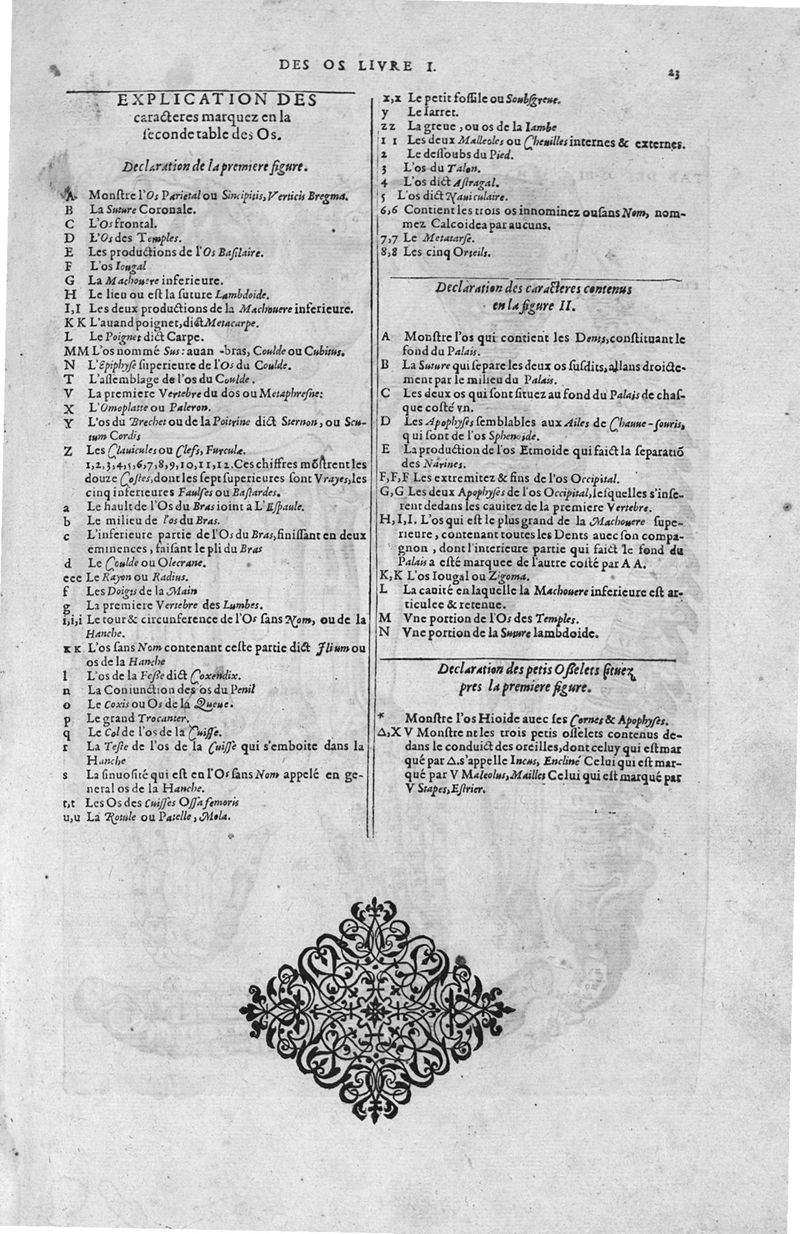 DES OS LIVRE I.
23
EXPLICATION DES
caracteres marquez en la
seconde table des Os.
Declaration de la premiere figure.
A Monstre l'Os Parietal ou Sincipitis, Verticis Bregma.
B La Suture Coronale.
C L'Os frontal.
D L'Os des Temples.
E Les productions de l'Os Basilaire.
F L'os Iougal
G La Machouere inferieure.
H Le lieu ou est la suture Lambdoide.
I,I Les deux productions de la Machouere inferieure.
KK L'auand poignet, dict Metacarpe.
L Le Poignet dict Carpe.
MM L'os nommé Sus: auan -bras, Coulde ou Cubitus.
N L'Epiphyse superieure de l'Os du Coulde.
T L'assemblage de l'os du Coulde.
V La premiere Vertebre du dos ou Metaphresne:
X L'Omoplatte ou Paleron.
Y L'os du Brechet ou de la Poitrine dict Sternon, ou Scu-
tum Cordis
Z Les Clauicules ou Clefs, Furculæ.
1,2,3,4,5,6,7,8,9,10,11,12. Ces chiffres mõstrent les
douze Costes, dont les sept superieures sont Vrayes, les
cinq inferieures Faulses ou Bastardes.
a Le hault de l'Os du Bras ioint à L'Espaule.
b Le milieu de l'os du Bras.
c L'inferieure partie de l'Os du Bras, finissant en deux
eminences, faisant le pli du Bras
d Le Coulde ou Olecrane.
eee Le Rayon ou Radius.
f Les Doigts de la Main
g La premiere Vertebre des Lumbes.
i,i,i Le tour & circunference de l'Os sans Nom, ou de la
Hanche.
KK L'os sans Nom contenant ceste partie dict Ilium ou
os de la Hanche
l L'os de la Fesse dict Coxendix.
n La Coniunction des os du Penil
o Le Coxis ou Os de la Queue.
p Le grand Trocanter.
q Le Col de l'os de la Cuisse.
r La Teste de l'os de la Cuisse qui s'emboite dans la
Hanche
s La sinuosité qui est en l'Os sans Nom appelé en ge-
neral os de la Hanche.
t,t Les Os des Cuisses Ossa femoris
u,u La Rotule ou Patelle, Mola.
x,x Le petit fossile ou Soubsgreue.
y Le Iarret.
zz La greue, ou os de la Iambe
1 1 Les deux Malleoles ou Cheuilles internes & externes.
2 Le dessoubs du Pied.
3 L'os du Talon.
4 L'os dict Astragal.
5 L'os dict Nauiculaire.
6,6 Contient les trois os innominez ou sans Nom, nom-
mez Calcoidea par aucuns.
7,7 Le Metatarse.
8,8 Les cinq Orteils.
Declaration des caracteres contenus
en la figure II.
A Monstre l'os qui contient les Dents, constituant le
fond du Palais.
B La Suture qui separe les deux os susdits, allans droicte-
ment par le milieu du Palais.
C Les deux os qui sont situez au fond du Palais de chas-
que costé vn.
D Les Apophyses semblables aux Ailes de Chauue-souris,
qui sont de l'os Sphenoide.
E La production de l'os Etmoide qui faict la separatiõ
des Narines.
F,F,F Les extremitez & fins de l'os Occipital.
G,G Les deux Apophyses de l'os Occipital, lesquelles s'inse-
rent dedans les cauitez de la premiere Vertebre.
H,I,I. L'os qui est le plus grand de la Machouere supe-
rieure, contenant toutes les Dents auec son compa-
gnon, dont l'interieure partie qui faict le fond du
Palais a esté marquee de l'autre costé par A A.
K,K L'os Iougal ou Zigoma.
L La cauité en laquelle la Machouere inferieure est ar-
ticulee & retenue.
M Vne portion de l'Os des Temples.
N Vne portion de la Suture lambdoide.
Declaration des petis Osselets situez
pres la premiere figure.
* Monstre l'os Hioide auec ses Cornes & Apophyses.
Δ,X V Monstrent les trois petis osselets contenus de-
dans le conduict des oreilles, dont celuy qui est mar
qué par Δ, s'appelle Incus, Encline Celui qui est mar-
qué par V Maleolus, Mailles Celui qui est marqué par
V Stapes, Estrier.